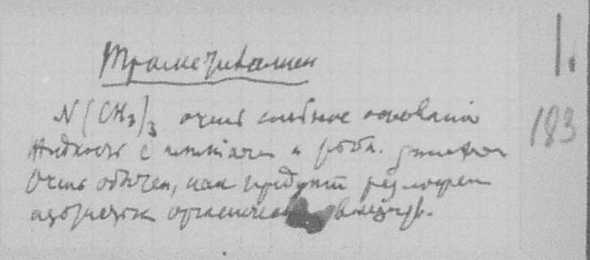 Триметиламин
N(CH₃)₃ очень слабое основание
Жидкость с и рыбн.
Очень обычен, как продукт разложен.
азотист. органическ.
I.
183